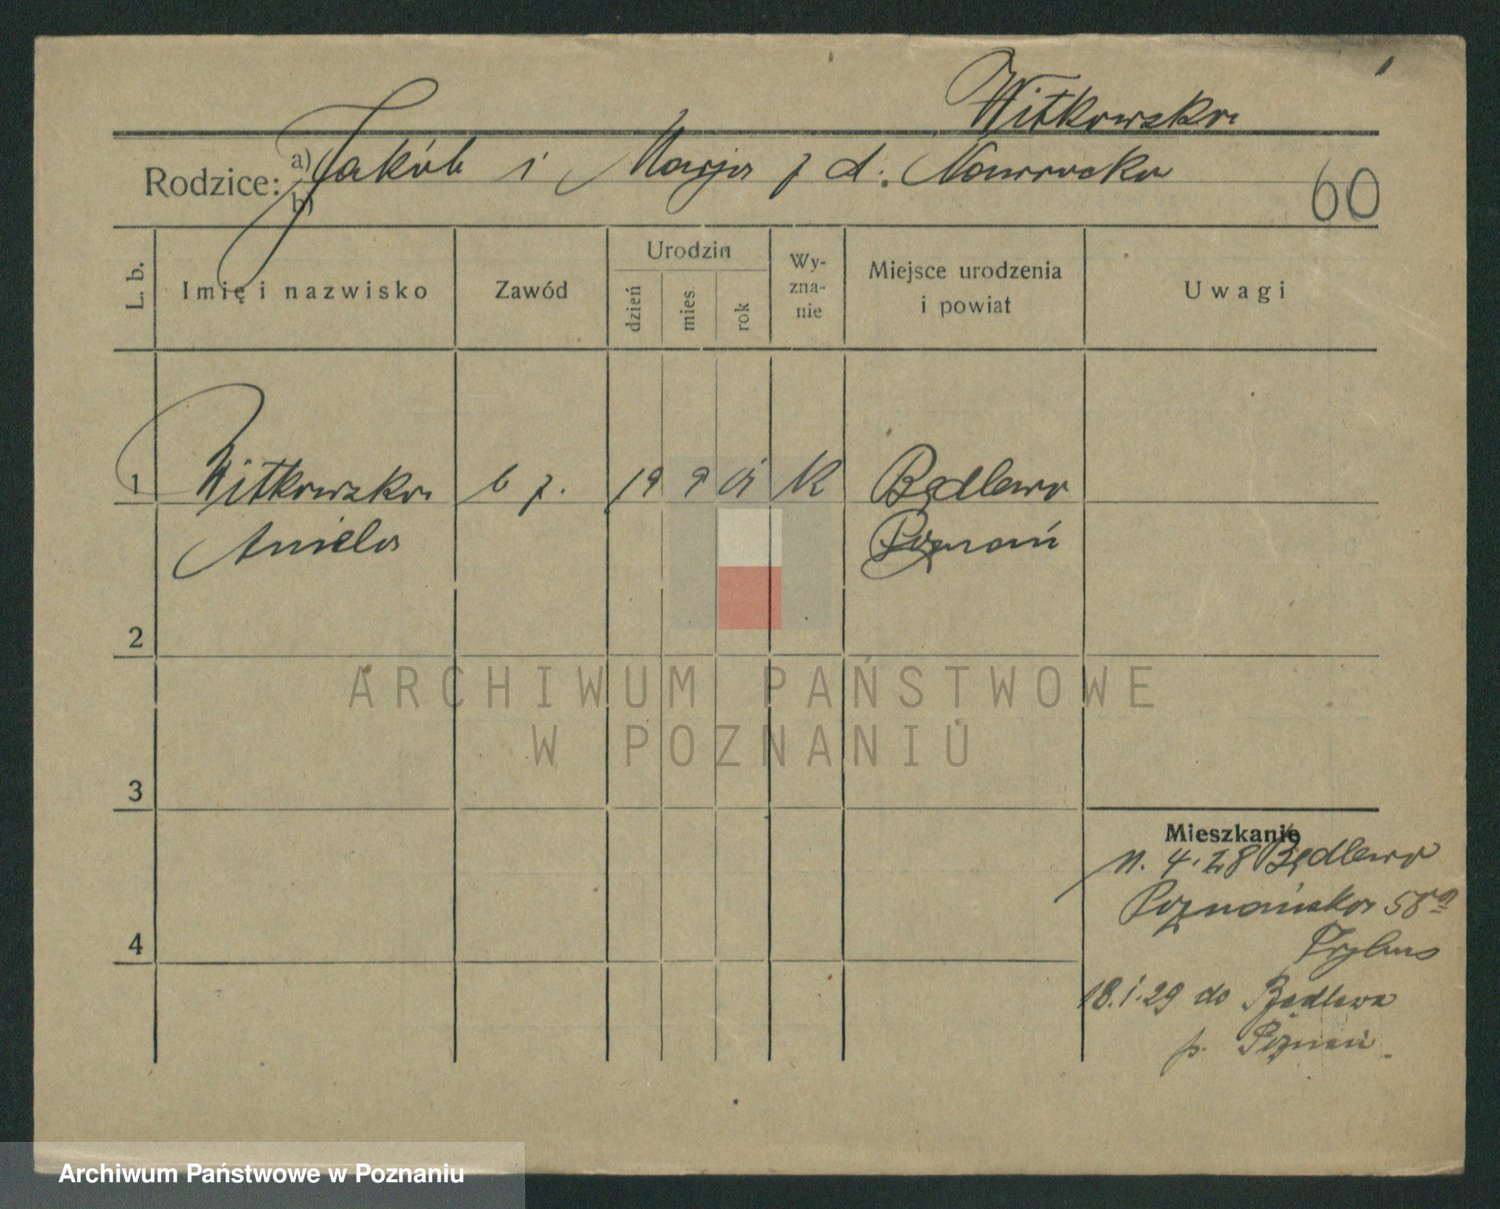 Witkowska
Rodzice: a) Jakób i Marja z d. Nawrocka
b)
60
L. b.
Imię i nazwisko
Zawód
Urodzin
dzień
mies.
rok
Wy-
zna-
nie
Miejsce urodzenia
i powiat
Uwagi
1 Witkowska b z. 19 9 K Będlewo
Aniela Poznań
2
ARCHIWUM PAŃSTWOWE
W POZNANIU
3
Mieszkanie
4. 28 Będlewo
Poznańska 58
4
18.1.29 do Będlewa
p. Poznań
Archiwum Państwowe w Poznaniu